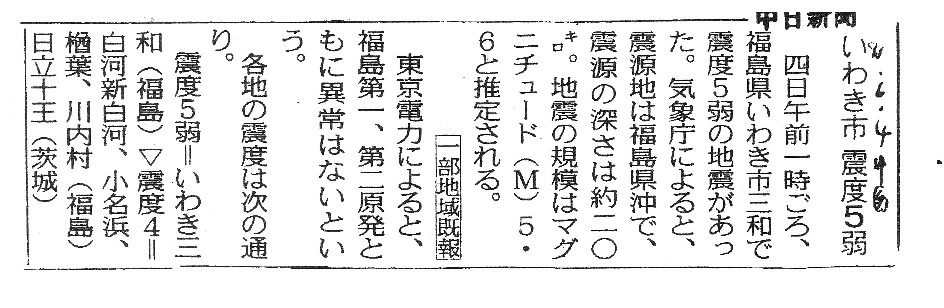 中日新聞
いわき市 震度5弱
四日午前一時ごろ、
福島県いわき市三和で
震度5弱の地震があっ
た。気象庁によると、
震源地は福島県沖で、
震源の深さは約二〇
㌔。地震の規模はマグ
ニチュード（M）5・
6と推定される。
一部地域既報
東京電力によると、
福島第一、第二原発と
もに異常はないとい
う。
各地の震度は次の通
り。
震度5弱＝いわき三
和（福島）▽震度4＝
白河新白河、小名浜、
楢葉、川内村（福島）
日立十王（茨城）